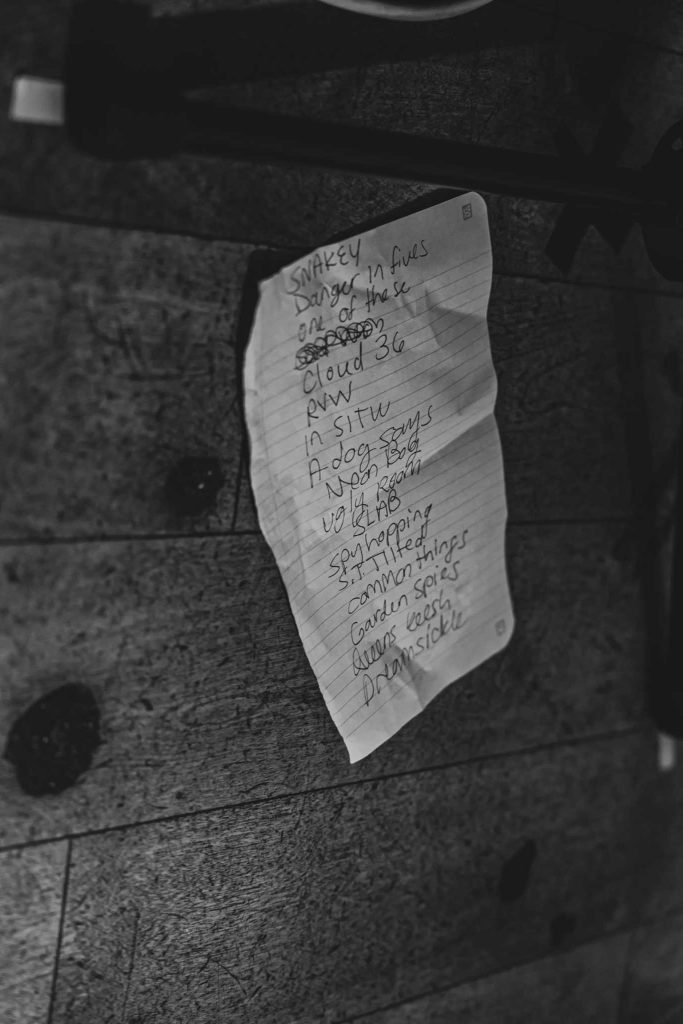 SNAKEY
Danger in fives
one of these
Cloud 36
RVW
in SITW
A dog says
Neon Bog
ugly Room
SLAB
spyhopping
S.T. Tilted
common things
Garden spies
Queens
Dreamsickle